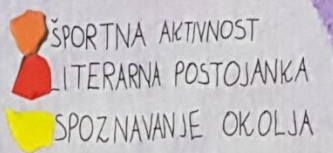 ŠPORTNA AKTIVNOST
LITERARNA POSTOJANKA
SPOZNAVANJE OKOLJA